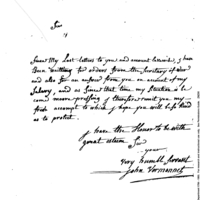 Sir
Since My Last letters to you and account herewith, I have
Been waitting for orders from the Secretary of War
and also for an answer from you on account of my
Salary, and as Since that time my Situation is be
come more profling of transfer remit you my
fresh account to which I hope you will be so kind
as to protect.
I have the Honor to be with
great esteem Sir
your
Very humble Servant
John